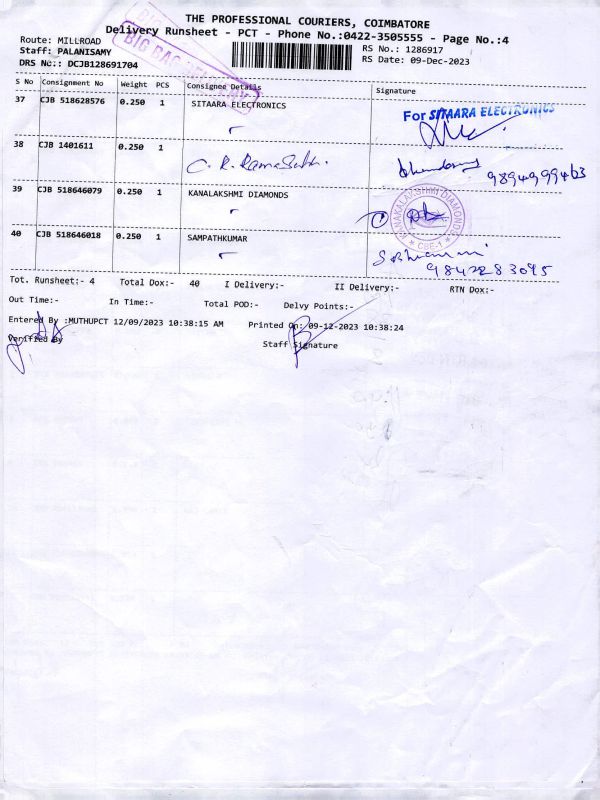 THE PROFESSIONAL COURIERS, COIMBATORE
Delivery Runsheet - PCT - Phone No.:0422-3505555 - Page No.:4
Route: MILLROAD
RS No.: 1286917
Staff: PALANISAMY
RS Date: 09-Dec-2023
DRS No:: DCJB128691704
BIG BAG
S No Consignment No Weight PCS Consignee Details Signature
37 CJB 518628576 0.250 1 SITAARA ELECTRONICS
For SITAARA ELECTRONICS
38 CJB 1401611 0.250 1
C. R. Rama
9894999463
39 CJB 518646079 0.250 1 KANALAKSHMI DIAMONDS
KANAKALAKSHMI DIAMONDS
CBE-1
40 CJB 518646018 0.250 1 SAMPATHKUMAR
9842283095
Tot. Runsheet:- 4 Total Dox:- 40 I Delivery:- II Delivery:- RTN Dox:-
Out Time:- In Time:- Total POD:- Delvy Points:-
Entered By :MUTHUPCT 12/09/2023 10:38:15 AM Printed On: 09-12-2023 10:38:24
Verified By Staff Signature